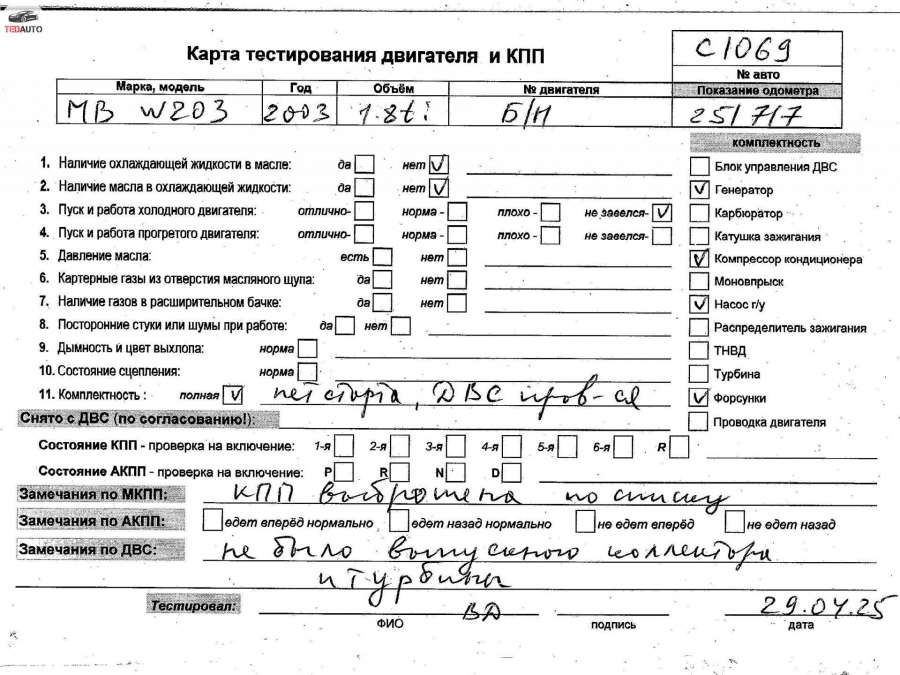 TEDAUTO
Карта тестирования двигателя и КПП
С1069
№ авто
Марка, модель Год Объём № двигателя Показание одометра
МВ W203 2003 1.8ti Б/Н 251717
комплектность
1. Наличие охлаждающей жидкости в масле: да нет V
Блок управления ДВС
2. Наличие масла в охлаждающей жидкости: да нет V
V Генератор
3. Пуск и работа холодного двигателя: отлично- норма - плохо - не завелся- V
Карбюратор
4. Пуск и работа прогретого двигателя: отлично- норма - плохо - не завелся-
Катушка зажигания
5. Давление масла: есть нет
V Компрессор кондиционера
6. Картерные газы из отверстия масляного щупа: да нет
Моновпрыск
7. Наличие газов в расширительном бачке: да нет
V Насос г/у
8. Посторонние стуки или шумы при работе: да нет
Распределитель зажигания
9. Дымность и цвет выхлопа: норма
ТНВД
10. Состояние сцепления: норма
Турбина
11. Комплектность : полная V нет старта, ДВС пров-ся
V Форсунки
Снято с ДВС (по согласованию!):
Проводка двигателя
Состояние КПП - проверка на включение: 1-я 2-я 3-я 4-я 5-я 6-я R
Состояние АКПП - проверка на включение: P R N D
Замечания по МКПП: КПП выброшена по списку
Замечания по АКПП: едет вперёд нормально едет назад нормально не едет вперёд не едет назад
Замечания по ДВС: не было выпускного коллектора
и турбины
Тестировал: ВД 29.04.25
ФИО подпись дата